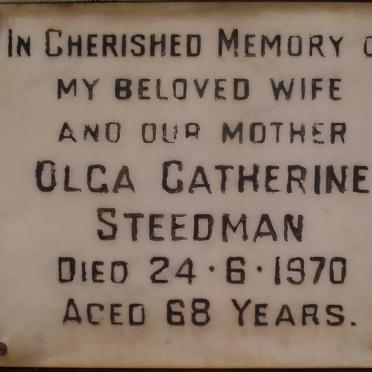 In Cherished Memory o
my beloved wife
and our mother
Olga Catherine
Steedman
Died 24·6·1970
Aged 68 Years.